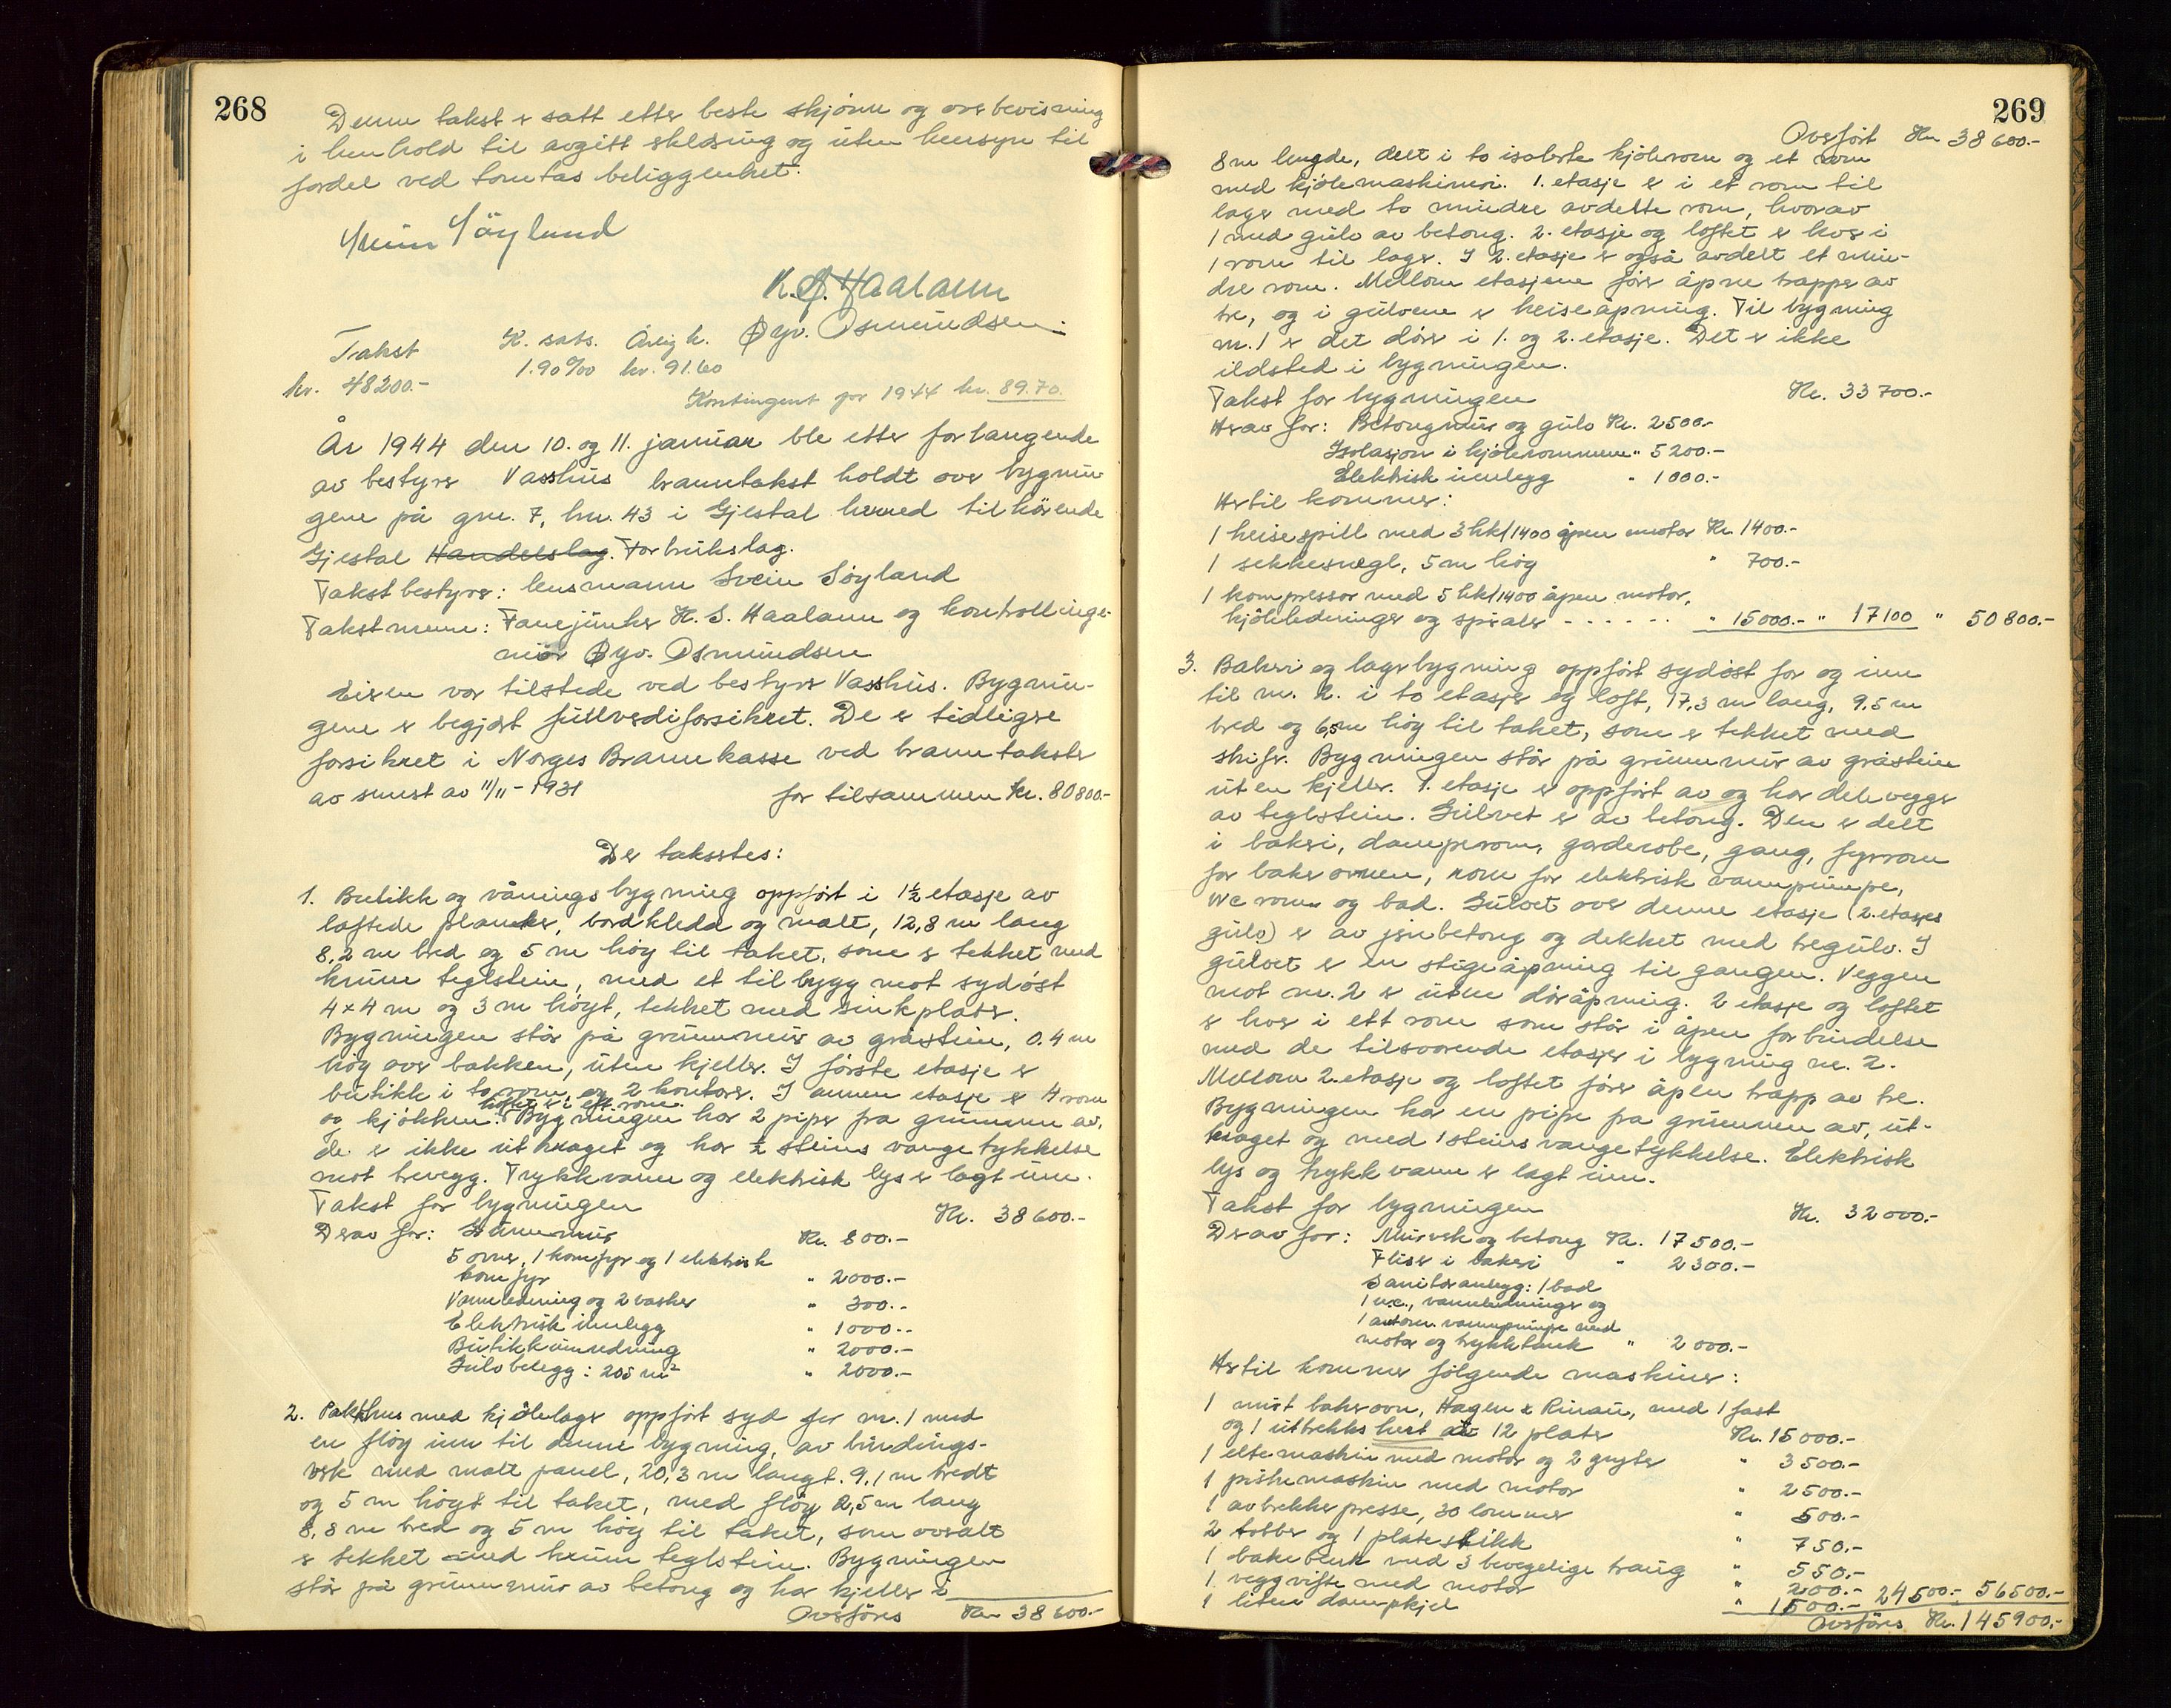 268
Denne takst er satt etter beste skjönn og overbevisning
i henhold til avgitt erklæring og uten hensyn til
fordel ved tomtas beliggenhet.
Svein Söyland
K. S. Haalann
Øyv. Osmundsen.
Takst K. sats. Årlig k.
kr. 48200.- 1.90 ‰ kr. 91.60
Kontingent for 1944 kr. 89.70.
År 1944 den 10. og 11. januar ble etter forlangende
av bestyrer Vasshus branntakst holdt over bygnin
gene på gnr. 7, bnr. 43 i Gjestal herred tilhörende
Gjestal Handelslag. Forbrukslag.
Takstbestyrer: lensmann Svein Söyland
Takstmenn: Fanejunker K. S. Haalann og kontrollinge-
niör Øyv. Osmundsen
Eieren var tilstede ved bestyrer Vasshus. Bygnin-
gene er begjært fullverdiforsikret. De er tidligere
forsikret i Norges Brannkasse ved branntakster
av senest av 11/11 - 1931 for tilsammen kr. 80800.-
Der takseres:
1. Butikk og våningsbygning oppfört i 1½ etasje av
laftede planker, bordkledd og malt, 12,8 m lang
8.2 m bred og 5 m höy til taket, som er tekket med
krum teglstein, med et tilbygg mot sydöst
4 x 4 m og 3 m höyt, tekket med sinkplater.
Bygningen står på grunnmur av gråstein, 0.4 m
höy over bakken, uten kjeller. I förste etasje er
butikk i to rom og 2 kontorer. I annen etasje er 4 rom
loftet er i ett rom.
og kjökken. Bygningen har 2 piper fra grunnen av,
de er ikke utkraget og har ½ steins vangetykkelse
mot trevegg. Trykkvann og elektrisk lys er lagt inn.
Takst for bygningen Kr. 38600.-
Derav for: Grunnmur Kr. 800.-
5 ovner, 1 komfyr og 1 elektrisk
komfyr " 2000.-
Vannledning og 2 vasker " 300.-
Elektrisk innlegg " 1000.-
Butikkinnredning " 2000.-
Gulvbelegg: 205 m² " 2000.-
2. Pakkhus med kjölelager oppfört syd for nr. 1 med
en flöy inn til denne bygning, av bindings-
verk med malt panel, 20,3 m langt. 9,1 m bredt
og 5 m höyt til taket, med flöy 2,5 m lang
8,8 m bred og 5 m höy til taket, som overalt
er tekket med krum teglstein. Bygningen
står på grunnmur av betong og har kjeller i
Overföres Kr. 38600.-
269
Overfört Kr. 38600.-
8 m lengde, delt i to isolerte kjölerom og et rom
med kjölemaskineri. 1. etasje er i et rom til
lager med to mindre avdelte rom, hvorav
1 med gulv av betong. 2. etasje og loftet er hver i
1 rom til lager. I 2. etasje er også avdelt et min-
dre rom. Mellom etasjene förer åpne trapper av
tre, og i gulvene er heiseåpning. Til bygning
nr. 1 er det dörer i 1. og 2. etasje. Det er ikke
ildsted i bygningen.
Takst for bygningen Kr. 33700.-
Herav for: Betongmur og gulv Kr. 2500.-
Isolasjon i kjölerommene " 5200.-
Elektrisk innlegg " 1000.-
Hertil kommer:
1 heisespill med 3 hk/1400 åpen motor Kr. 1400.-
1 sekkesnegl, 5 m höy " 700.-
1 kompressor med 5 hk/1400 åpen motor,
kjöleledninger og spiraler - - - - - - " 15000.- " 17100 " 50800.-
3. Bakeri og lagerbygning oppfört sydöst for og inn
til nr. 2. i to etasjer og loft, 17,3 m lang, 9,5 m
bred og 6,5 m höy til taket, som er tekket med
skifer. Bygningen står på grunnmur av gråstein
uten kjeller. 1. etasje er oppfört av og har delevegger
av teglstein. Gulvet er av betong. Den er delt
i bakeri, damperom, garderobe, gang, fyrrom
for bakerovnen, rom for elektrisk vannpumpe,
wc rom og bad. Gulvet over denne etasje (2. etasjes
gulv) er av jernbetong og dekket med tregulv. I
gulvet er en stigeåpning til gangen. Veggen
mot nr. 2 er uten döråpning. 2 etasje og loftet
er hver i ett rom som står i åpen forbindelse
med de tilsvarende etasjer i bygning nr. 2.
Mellom 2. etasje og loftet förer åpen trapp av tre.
Bygningen har en pipe fra grunnen av, ut-
kraget og med 1 steins vangetykkelse. Elektrisk
lys og trykkvann er lagt inn.
Takst for bygningen Kr. 32000.-
Derav for: Murverk og betong Kr. 17500.-
Fliser i bakeri " 2300.-
Sanitæranlegg: 1 bad
1 w.c., vannledninger og
1 autom. vannpumpe med
motor og trykktank " 2000.-
Hertil kommer fölgende maskiner:
1 murt bakerovn, Hagen & Rinau, med 1 fast
og 1 uttrekks herd à 12 plater Kr. 15000.-
1 eltemaskin med motor og 2 gryter " 3500.-
1 piskemaskin med motor " 2500.-
1 avtrekkerpresse, 30 lommer " 500.-
2 tobber og 1 platestikk " 750.-
1 bakebenk med 3 bevegelige traug " 550.-
1 veggvifte med motor " 200.- 24500.- 56500.-
1 liten dampkjel " 1500.-
Overföres Kr. 145900.-